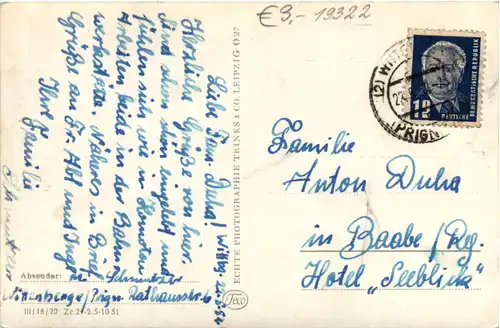 € 3,- 19322
Liebe Frau Duha! Wittbg. 26.3.54
Herzliche Grüße von hier.
Sind schon von eingelebt und
fühlen sich wie in
Arbeiten beide in der Bahn
wirtschaft. Näheres im Brief.
Grüße an Fr. Abl und Inge.
Ihre J.
Familie
Schmutzer
ECHTE PHOTOGRAPHIE TRINKS & CO. LEIPZIG O 27
Absender:
Schmutzer
Wittenberge/Prign. Rathausstr. 6
III/18/20 Ze 21-2.5-10 51
Teco
(2) WITT
(PRIGN
12
DEUTSCHE
DEMOKRATISCHE REPUBLIK
Familie
Anton Duha
in Baabe/Rg.
Hotel „Seeblick"